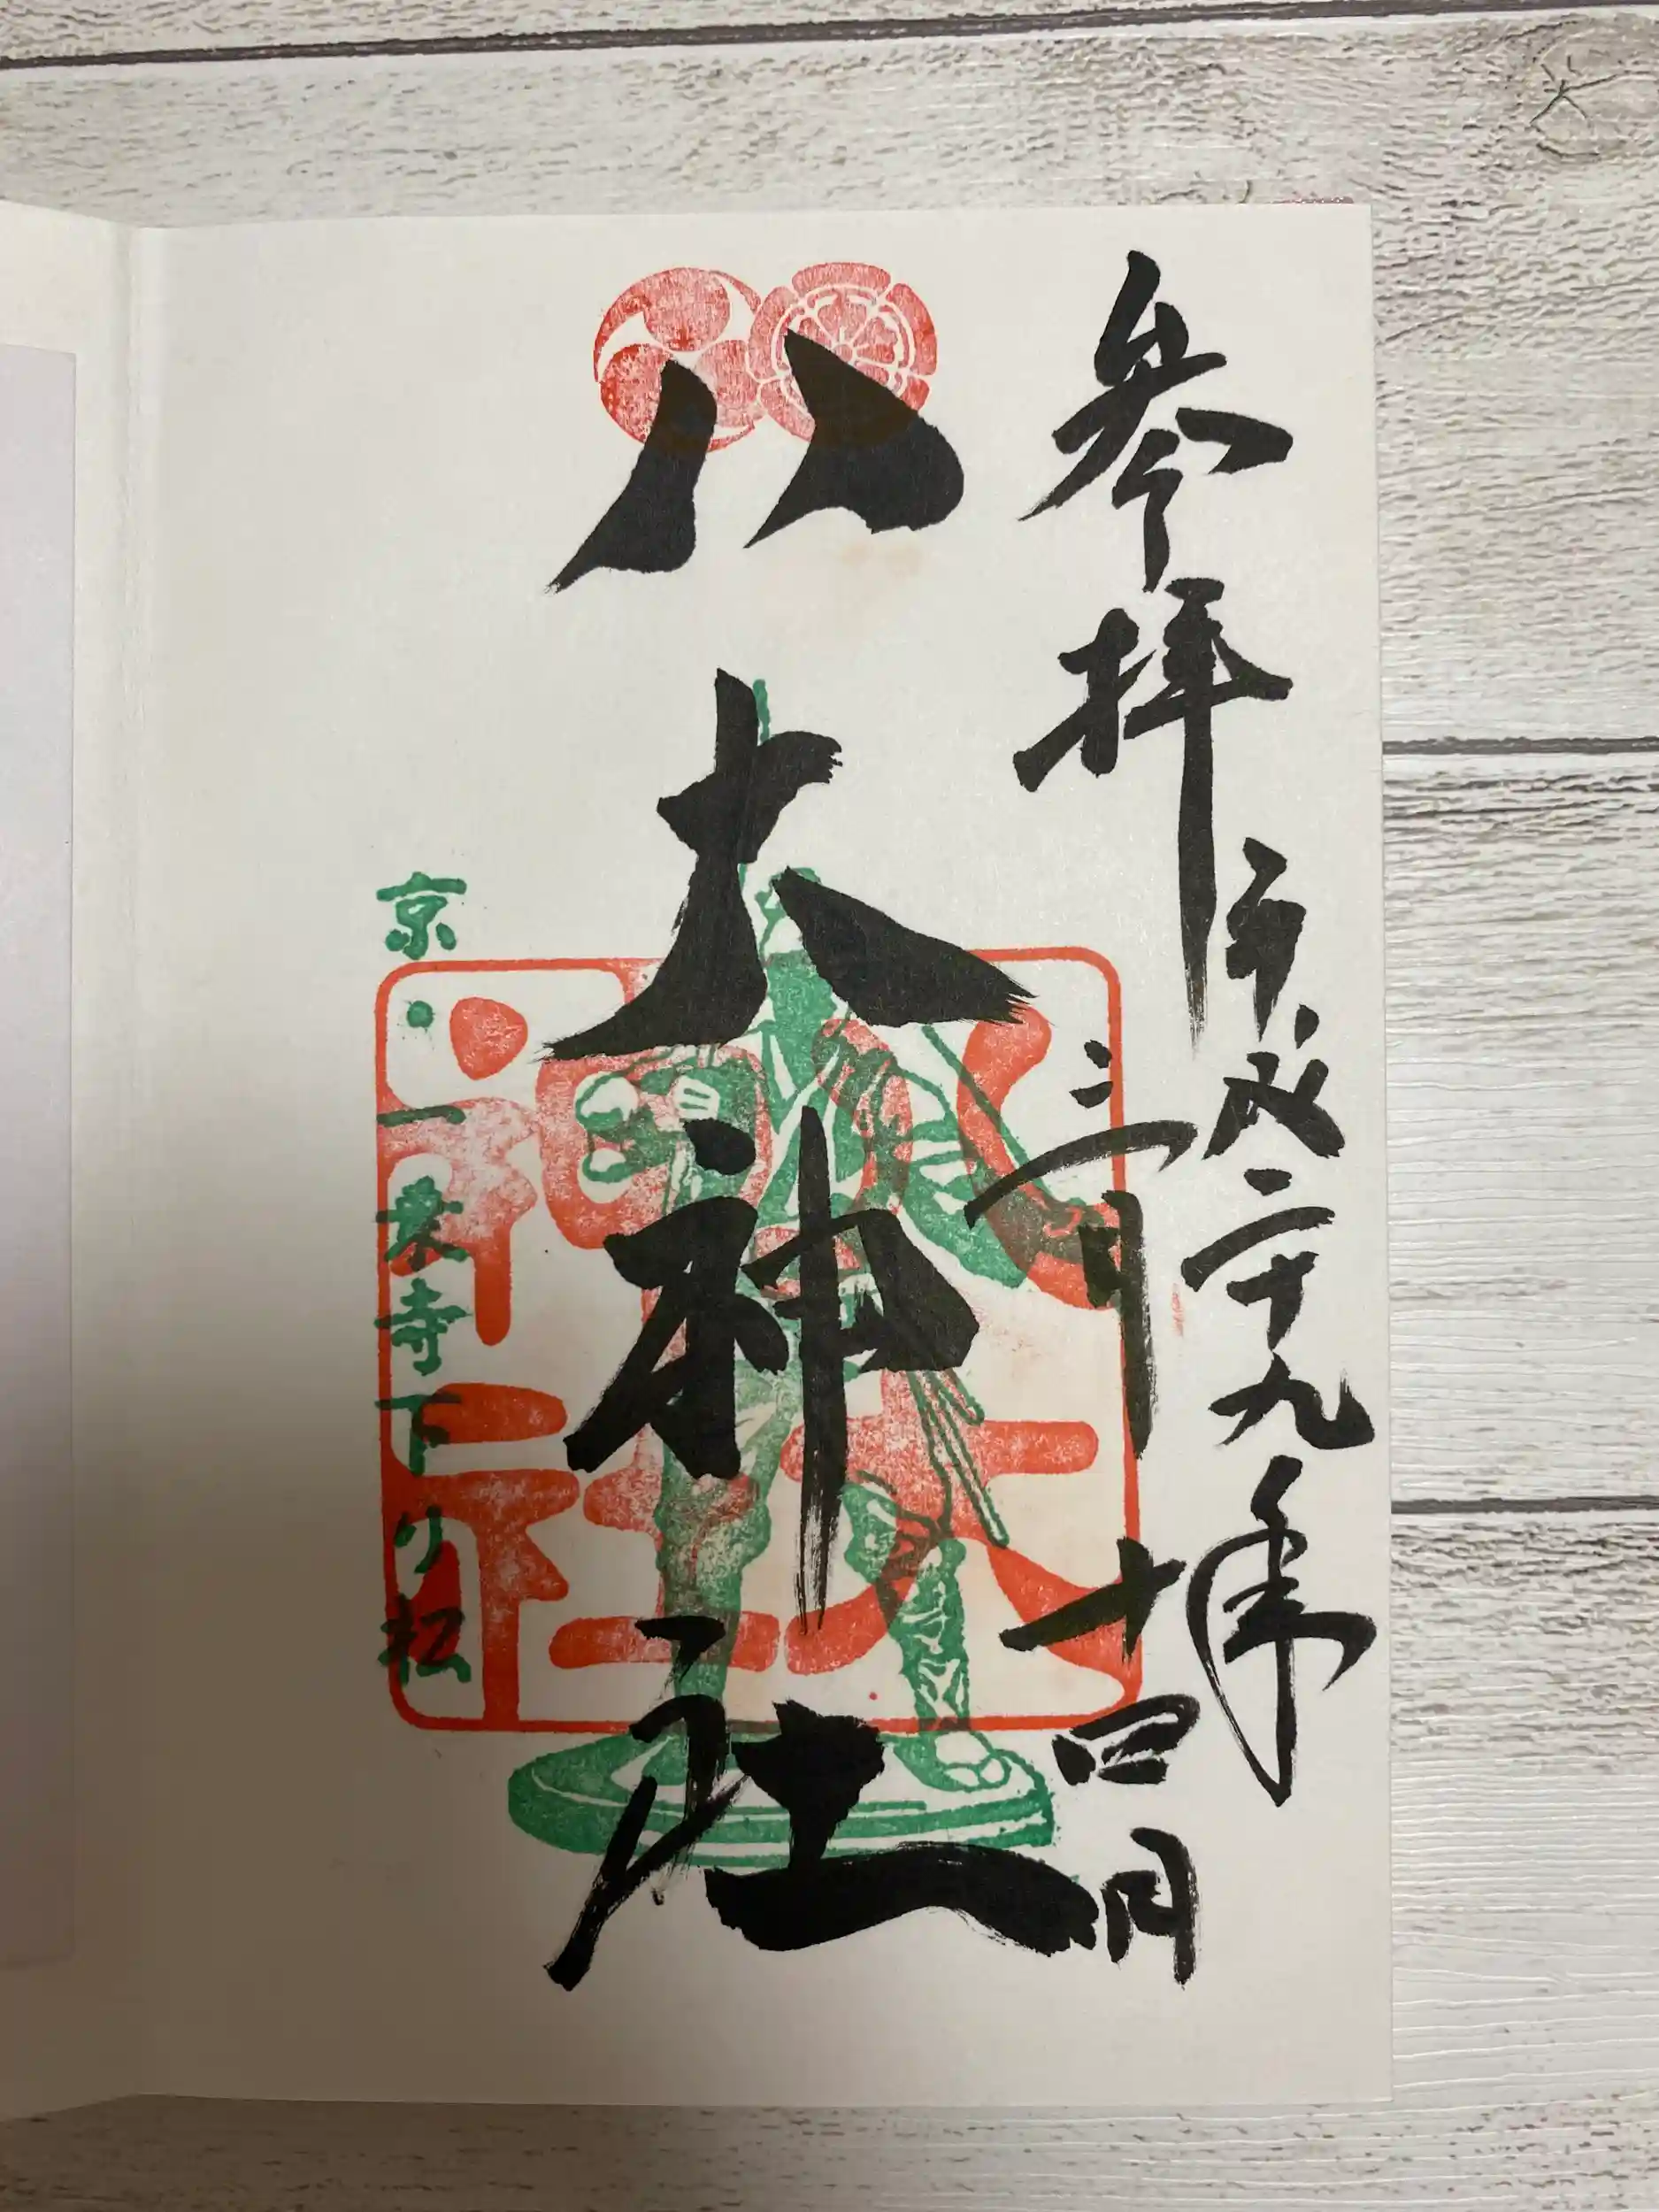 参拝
平成二十九年
三月十四日
八大神社
八大神社
京・一乗寺下り松